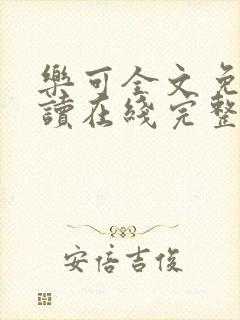 樂可全文免
讀在綫完整
安倍吉俊